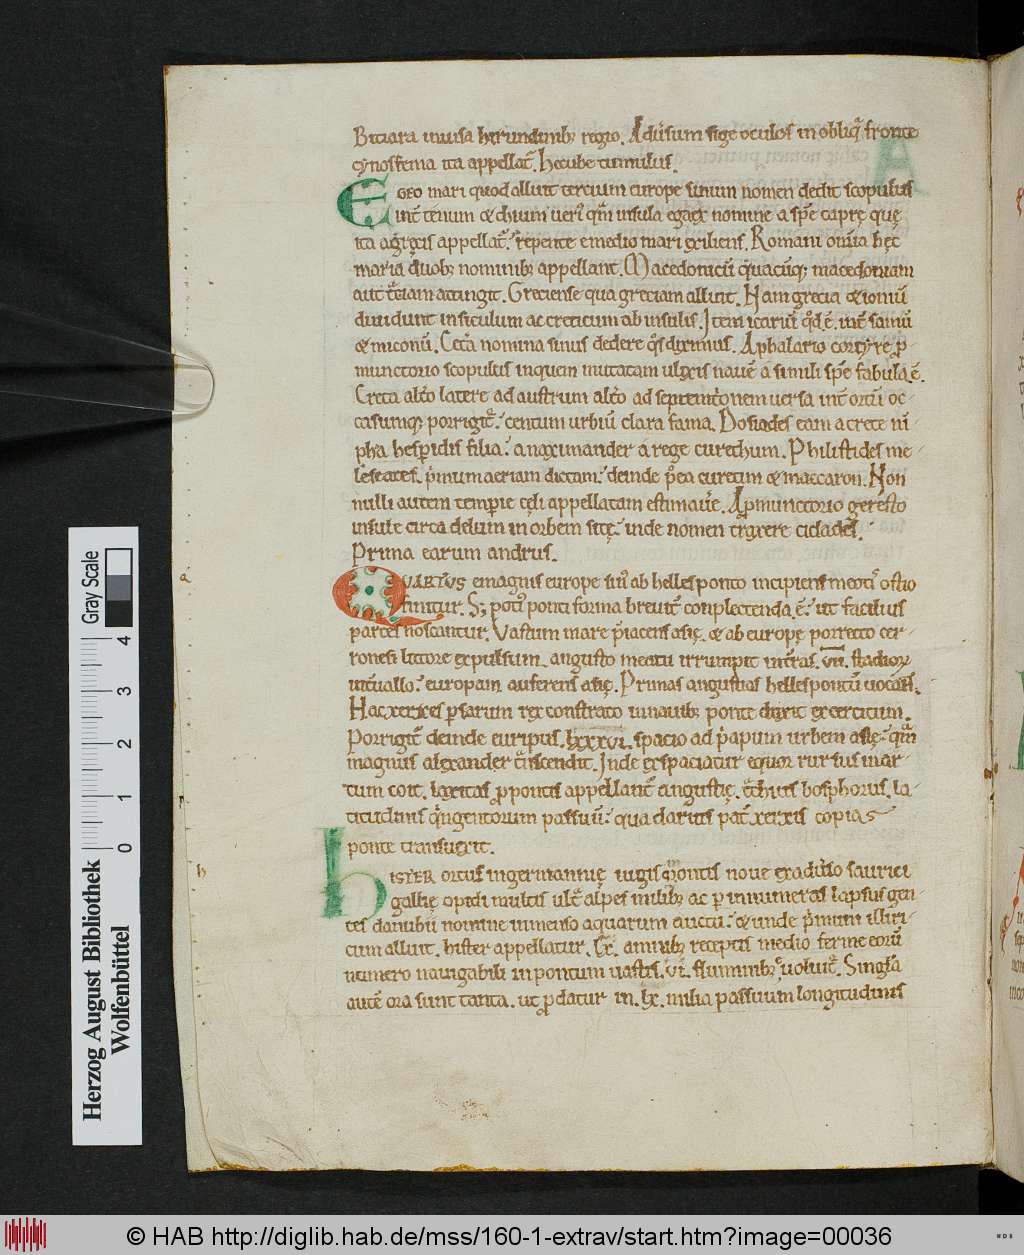 Bitiara inuisa hirundinib; regio. Aduersum sige oculos in obliq̄ fronte
cynossema ita appellat̄. hecube tumulus.
EGEO mari quod alluit tercium europe sinum nomen dedit scopulus
int̄ tenum & chium ueri᷒ q̄m insula egaex nomine a sp̄e caprę quę
ita a gręcis appellat̄. repente e medio mari exiliens. Romani om̄ia hęc
maria duob; nominib; appellant. Macedonicū quacūq; macedoniam
aut t̄ciam attingit. Greciense qua greciam alluit. Nam grecia & ioniū
diuidunt in siculum ac creticum ab insulis. Item icariū q̄d ē. int̄ samū
& miconū. Cet̄a nomina sinus dedere q̄s diximus. Aphalario cortyre p̄
munctorio scopulus in quem mutatam ulixis nauē a simili sp̄e fabula ē.
Creta alt̄o latere ad austrum alt̄o ad septemt̄onem uersa int̄ ortū oc-
casumq; porrigit̄. centum urbiū clara fama. Dosiades eam a crete nī-
pha hesp̄idis filia. anaximander a rege curethum. Philistides me-
leseates. p̄mum aeriam dictam. deinde p᷒ea curetim & maccaron. Non
nulli autem temp̄ie cęli appellatam estimauēre. Ap̄munctorio geresto
insule circa delum in orbem sitę. unde nomen traxere cicladel.
Prima earum andrus.
QVARTVS e magnis europe sin᷒ ab hellesponto incipiens meoti᷒ ostio
finitur. S; toti᷒ ponti forma breuit̄ conplectenda ē. ut facilius
partes noscantur. Vastum mare p̄iacens asię. & ab europę porrecto cer-
ronesi littore expulsum. angusto meatu irrumpit int̄ras. vii. stadioꝝ
int̄uallo. europam auferens asię. Primas angustias hellespontū uocant.
Hac xerxes p̄sarum rex constrato in nauib; ponte duxit exercitum.
Porrigit̄ deinde euripus. lxxxvi. spacio ad p̄apum urbem asię. q̄m
magnus alexander t̄nscendit. Inde expaciatur equor rursus inar-
tum coit. laxitas p̄pontis appellant̄ angustię. t̄chius bosphorus. la-
titudinis q̄ngentorum passuū. qua darius pat̄ xerxis copias
ponte transuexit.
HISTER ortus in germannię iugis montis noue exaduerso saurici
gallię opidi multis ult̄ alpes milib; ac p̄ innumeras lapsus gen-
tes danubii nomine inmenso aquarum auctu. & unde p̄mum illiri-
cum alluit. hister appellatur. lx. annib; receptis medio ferme eorū
numero nauigabili in pontum uastis. vi. fluminib; euoluit̄. Singl̄a
autē ora sunt tanta. ut p̄datur in. lx. milia passuum longitudinis
a
b
Herzog August Bibliothek
Wolfenbüttel
Gray Scale
0 1 2 3 4
© HAB http://diglib.hab.de/mss/160-1-extrav/start.htm?image=00036